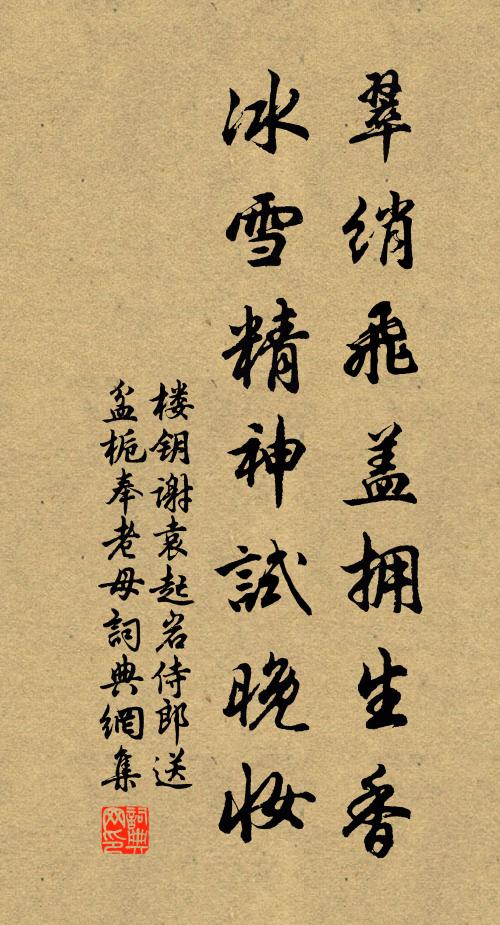 翠绡飛盖拥生香
冰雪精神試晚妆
楼钥谢袁起岩侍郎送
盆栀奉老母詞典網集
詞典
网印